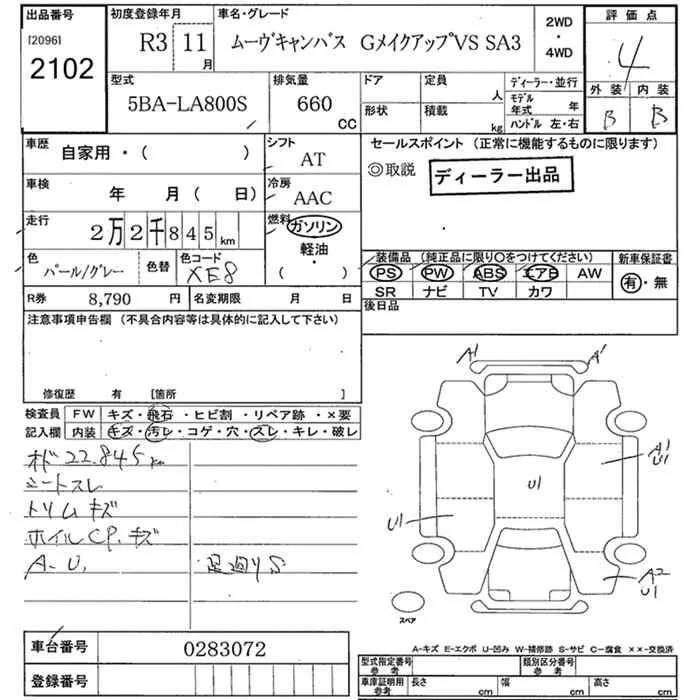 出品番号
[2096]
2102
初度登録年月
R3 11月
車名・グレード
ムーヴキャンバス GメイクアップVS SA3
2WD
・
4WD
評価点
4
外装 内装
B B
型式
5BA-LA800S
排気量
660 CC
ドア
形状
定員 人
積載 kg
ディーラー・並行
モデル年式 年
ハンドル 左・右
車歴
自家用・( )
シフト
AT
車検
年 月( 日)
冷房
AAC
走行
2万2千845km
燃料
ガソリン
軽油
・
( )
色
パール/グレー
色替
色コード
XE8
R券 8,790 円
名変期限 月 日
セールスポイント (正常に機能するものに限ります)
◎取説
ディーラー出品
装備品 (純正品に限り○をつけてください)
PS PW ABS エアB AW
SR ナビ TV カワ
新車保証書
有・無
後日品
注意事項申告欄 (不具合内容等は具体的に記入して下さい)
修復歴 有 [箇所 ]
検査員
記入欄
FW キズ・飛石・ヒビ割・リペア跡・×要
内装 キズ・汚レ・コゲ・穴・スレ・キレ・破レ
オド 22.845km
シートスレ
トリムキズ
ホイルCP.キズ
A-U,
足廻りS
A1 A1
A1
U1
U1
U1
A2
U1
スペア
A-キズ E-エクボ U-凹み W-補修跡 S-サビ C-腐食 ××-交換済
車台番号
0283072
登録番号
型式指定番号
参考
類別区分番号
参考
車庫証明用
参考
長さ cm
幅 cm
高さ cm